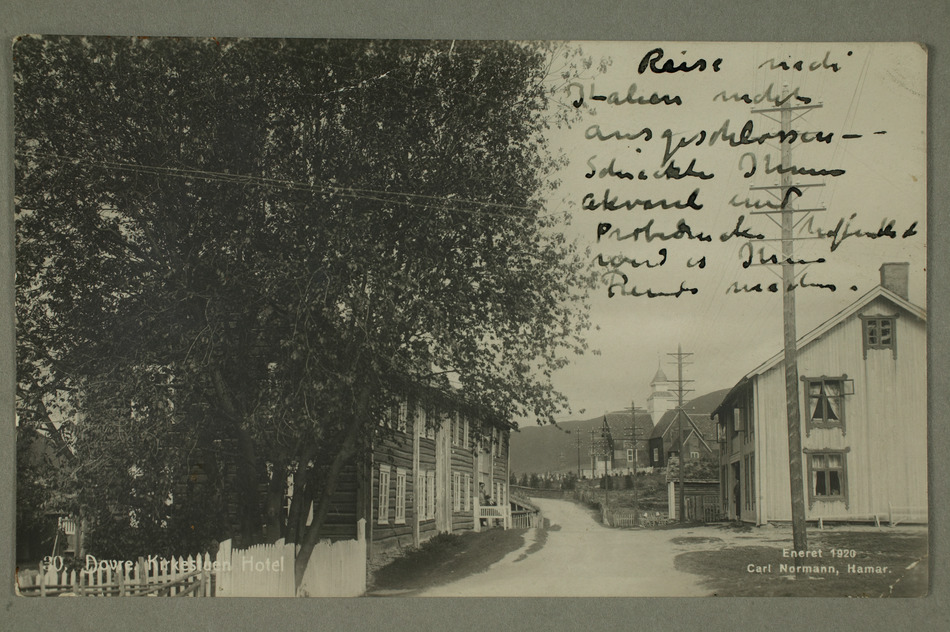 Reise nach
Italien nicht
ausgeschlossen --
Schickte Ihnen
und
Probedrucke
wird es Ihnen
Freude machen.
30. Dovre. Kirkestuen Hotel
Eneret 1920
Carl Normann, Hamar.